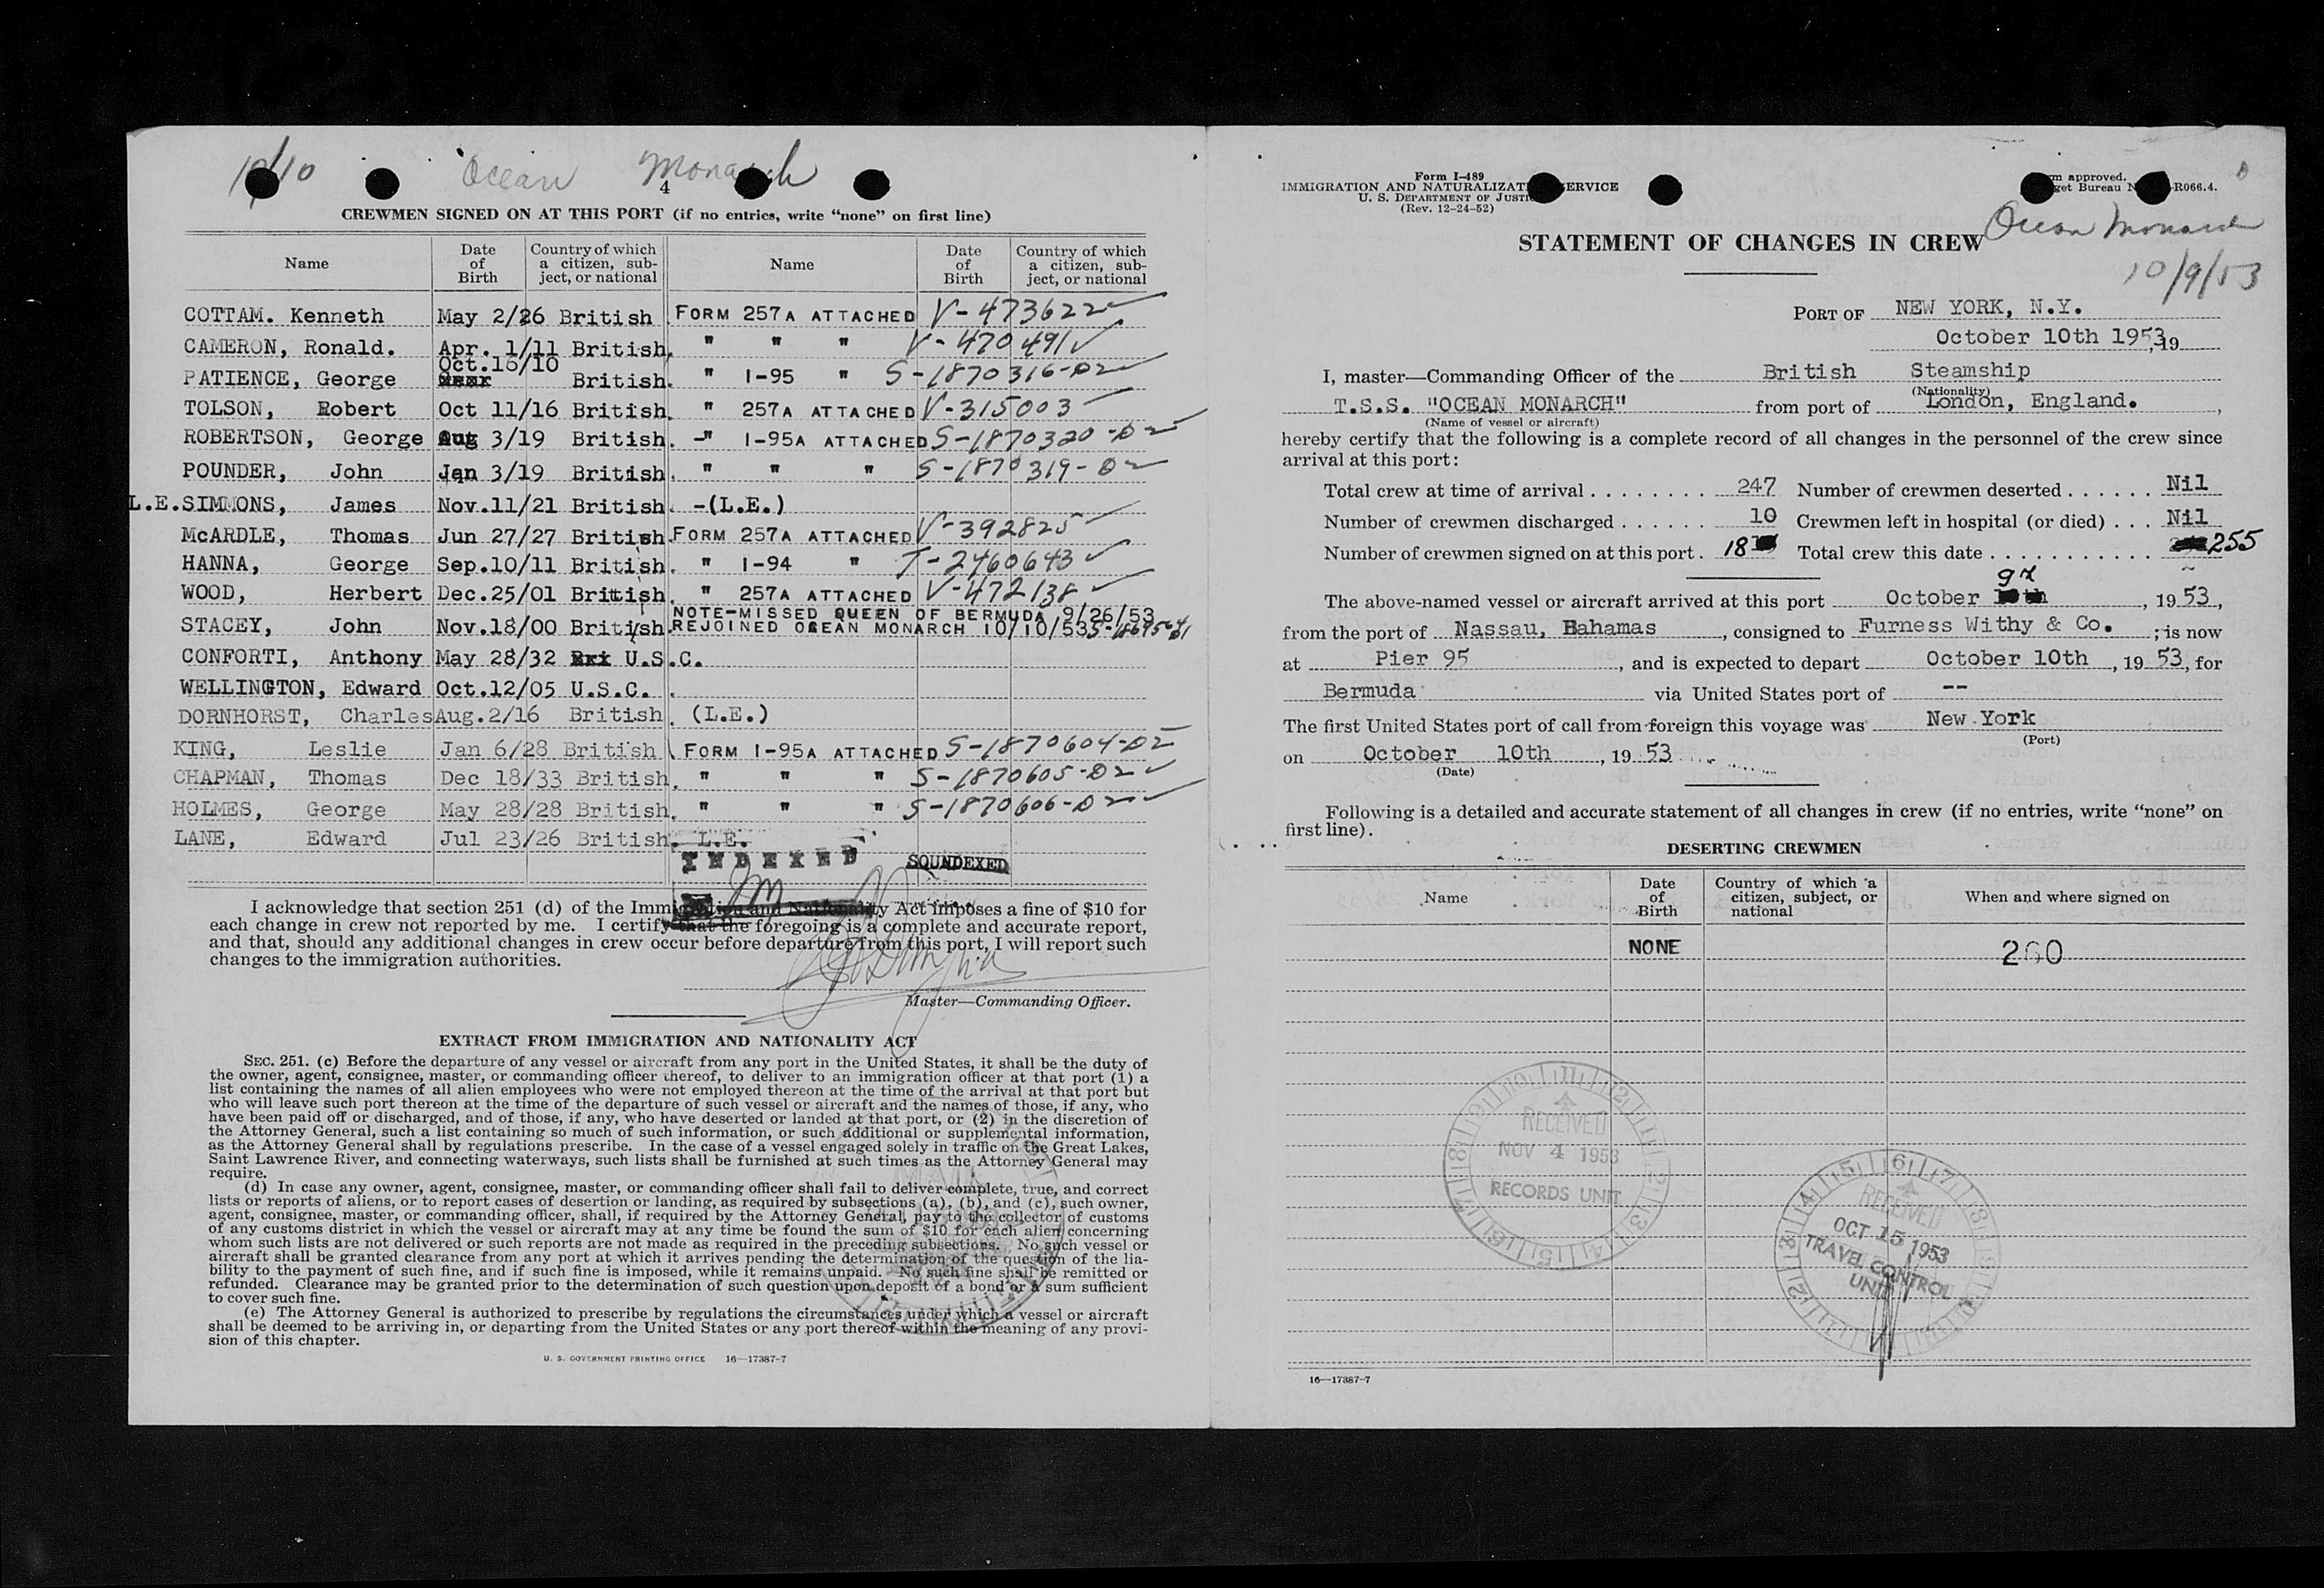 10/10 Ocean Monarch
4
CREWMEN SIGNED ON AT THIS PORT (if no entries, write "none" on first line)
Name Date of Birth Country of which a citizen, subject, or national Name Date of Birth Country of which a citizen, subject, or national
COTTAM. Kenneth May 2/26 British FORM 257A ATTACHED V-473622
CAMERON, Ronald. Apr. 1/11 British. " " " V-470491
PATIENCE, George Oct.16/10 British. " I-95 " S-1870316-D2
TOLSON, Robert Oct 11/16 British. " 257A ATTACHED V-315003
ROBERTSON, George Aug 3/19 British. -" I-95A ATTACHED S-1870320-D2
POUNDER, John Jan 3/19 British. " " " S-1870319-D2
L.E. SIMMONS, James Nov.11/21 British. -(L.E.)
McARDLE, Thomas Jun 27/27 British. FORM 257A ATTACHED V-392825
HANNA, George Sep.10/11 British. " I-94 " T-2460643
WOOD, Herbert Dec.25/01 British. " 257A ATTACHED V-472138
NOTE-MISSED QUEEN OF BERMUDA 9/26/53
STACEY, John Nov.18/00 British. REJOINED OCEAN MONARCH 10/10/53
CONFORTI, Anthony May 28/32 U.S.C.
WELLINGTON, Edward Oct.12/05 U.S.C.
DORNHORST, Charles Aug.2/16 British. (L.E.)
KING, Leslie Jan 6/28 British FORM I-95A ATTACHED S-1870604-D2
CHAPMAN, Thomas Dec 18/33 British. " " " S-1870605-D2
HOLMES, George May 28/28 British. " " " S-1870606-D2
LANE, Edward Jul 23/26 British. L.E.
INDEXED SOUNDEXED
I acknowledge that section 251 (d) of the Immigration and Nationality Act imposes a fine of $10 for
each change in crew not reported by me. I certify that the foregoing is a complete and accurate report,
and that, should any additional changes in crew occur before departure from this port, I will report such
changes to the immigration authorities.
Master—Commanding Officer.
EXTRACT FROM IMMIGRATION AND NATIONALITY ACT
SEC. 251. (c) Before the departure of any vessel or aircraft from any port in the United States, it shall be the duty of
the owner, agent, consignee, master, or commanding officer thereof, to deliver to an immigration officer at that port (1) a
list containing the names of all alien employees who were not employed thereon at the time of the arrival at that port but
who will leave such port thereon at the time of the departure of such vessel or aircraft and the names of those, if any, who
have been paid off or discharged, and of those, if any, who have deserted or landed at that port, or (2) in the discretion of
the Attorney General, such a list containing so much of such information, or such additional or supplemental information,
as the Attorney General shall by regulations prescribe. In the case of a vessel engaged solely in traffic on the Great Lakes,
Saint Lawrence River, and connecting waterways, such lists shall be furnished at such times as the Attorney General may
require.
(d) In case any owner, agent, consignee, master, or commanding officer shall fail to deliver complete, true, and correct
lists or reports of aliens, or to report cases of desertion or landing, as required by subsections (a), (b), and (c), such owner,
agent, consignee, master, or commanding officer, shall, if required by the Attorney General, pay to the collector of customs
of any customs district in which the vessel or aircraft may at any time be found the sum of $10 for each alien concerning
whom such lists are not delivered or such reports are not made as required in the preceding subsections. No such vessel or
aircraft shall be granted clearance from any port at which it arrives pending the determination of the question of the lia-
bility to the payment of such fine, and if such fine is imposed, while it remains unpaid. No such fine shall be remitted or
refunded. Clearance may be granted prior to the determination of such question upon deposit of a bond or a sum sufficient
to cover such fine.
(e) The Attorney General is authorized to prescribe by regulations the circumstances under which a vessel or aircraft
shall be deemed to be arriving in, or departing from the United States or any port thereof within the meaning of any provi-
sion of this chapter.
U. S. GOVERNMENT PRINTING OFFICE 16—17387-7
Form I-489
IMMIGRATION AND NATURALIZATION SERVICE
U. S. DEPARTMENT OF JUSTICE
(Rev. 12-24-52)
Form approved.
Budget Bureau No. 43-R066.4.
Ocean Monarch
STATEMENT OF CHANGES IN CREW
10/9/53
PORT OF NEW YORK, N.Y.
October 10th 1953, 19
I, master—Commanding Officer of the British Steamship
(Nationality)
T.S.S. "OCEAN MONARCH" from port of London, England.,
(Name of vessel or aircraft)
hereby certify that the following is a complete record of all changes in the personnel of the crew since
arrival at this port:
Total crew at time of arrival 247 Number of crewmen deserted Nil
Number of crewmen discharged 10 Crewmen left in hospital (or died) Nil
Number of crewmen signed on at this port. 18 Total crew this date 255
The above-named vessel or aircraft arrived at this port October 9th, 1953,
from the port of Nassau, Bahamas, consigned to Furness Withy & Co. ; is now
at Pier 95, and is expected to depart October 10th, 1953, for
Bermuda via United States port of --
The first United States port of call from foreign this voyage was New York
(Port)
on October 10th, 1953
(Date)
Following is a detailed and accurate statement of all changes in crew (if no entries, write "none" on
first line).
DESERTING CREWMEN
Name Date of Birth Country of which a citizen, subject, or national When and where signed on
NONE 260
RECEIVED
NOV 4 1953
RECORDS UNIT
RECEIVED
OCT 15 1953
TRAVEL CONTROL
UNIT
16—17387-7